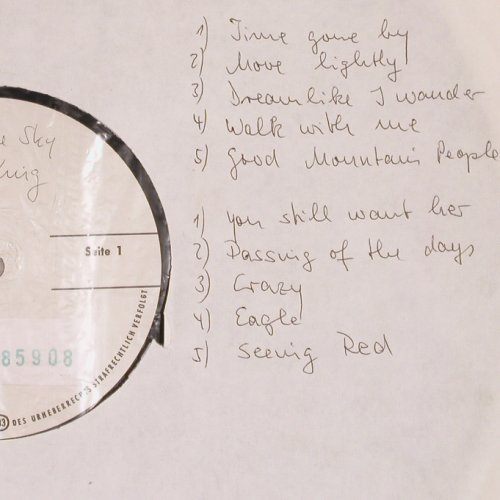 1) Time gone by
2) Move lightly
3) Dreamlike I wander
4) Walk with me
5) Good Mountain People
1) You still want her
2) Passing of the days
3) Crazy
4) Eagle
5) Seeing Red
Sky
Seite 1
85908
DES URHEBERRECHTS STRAFRECHTLICH VERFOLGT